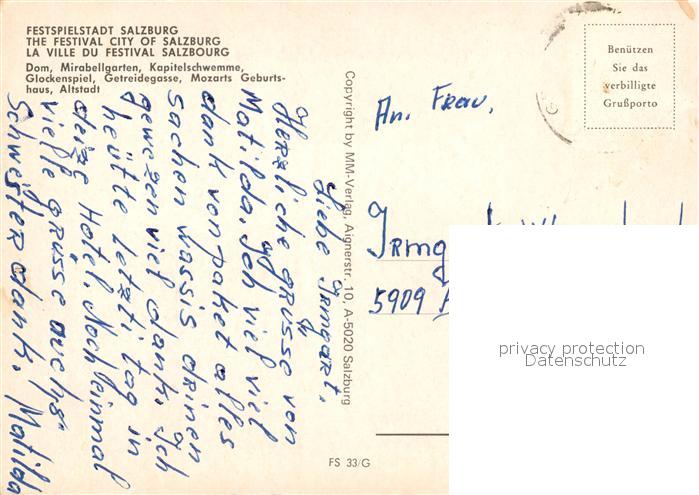 FESTSPIELSTADT SALZBURG
THE FESTIVAL CITY OF SALZBURG
LA VILLE DU FESTIVAL SALZBOURG
Dom, Mirabellgarten, Kapitelschwemme,
Glockenspiel, Getreidegasse, Mozarts Geburts-
haus, Altstadt
Liebe Irmgart.
Herzliche grüsse von
Matilda. Ich viel viel
dank von paket alles
sachen wassis drinen
gewezen viel dank. Ich
heütte letzti tag in
Hotel. Noch einmal
vielle grüsse auch
Schwester dank. Matilda
Copyright by MM-Verlag, Aignerstr. 10, A-5020 Salzburg
FS 33/G
Benützen
Sie das
verbilligte
Grußporto
An. Frau.
Irmg
5909
privacy protection
Datenschutz